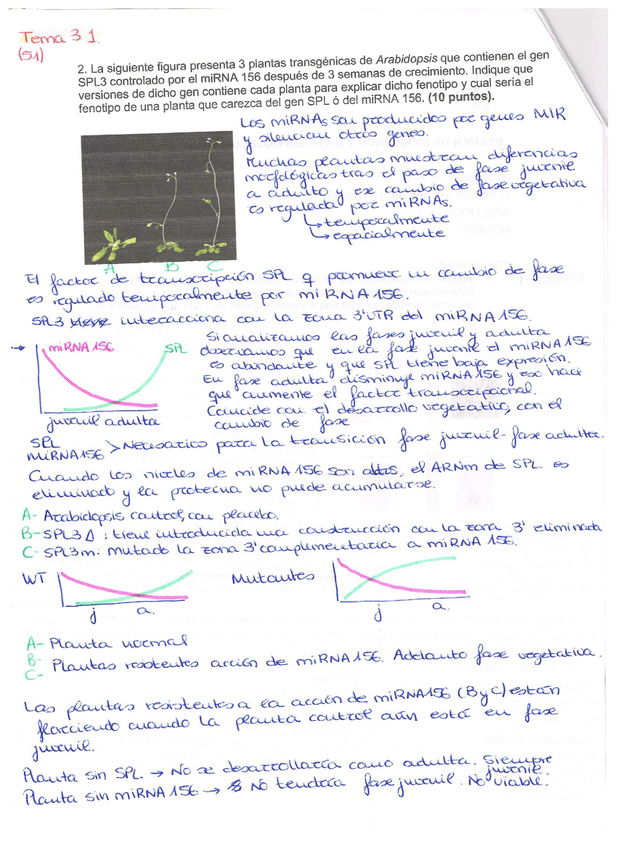 Tema 3 1.
(5.1)
2. La siguiente figura presenta 3 plantas transgénicas de Arabidopsis que contienen el gen
SPL3 controlado por el miRNA 156 después de 3 semanas de crecimiento. Indique que
versiones de dicho gen contiene cada planta para explicar dicho fenotipo y cual sería el
fenotipo de una planta que carezca del gen SPL ó del miRNA 156. (10 puntos).
Los miRNAs son producidos por genes MIR
y silencian otros genes.
Muchas plantas muestran diferencias
morfológicas tras el paso de fase juvenil
a adulto y ese cambio de fase vegetativa
es regulada por miRNAs.
↳ temporalmente
↳ espacialmente
A B C
El factor de transcripción SPL q promueve un cambio de fase
es regulado temporalmente por miRNA 156.
SPL3 interacciona con la zona 3'UTR del miRNA 156.
miRNA 156 SPL
juvenil adulta
Si analizamos las fases juvenil y adulta
observamos que en la fase juvenil el miRNA 156
es abundante y que SPL tiene baja expresión.
En fase adulta disminuye miRNA 156 y eso hace
que aumente el factor transcripcional.
Coincide con el desarrollo vegetativo, con el
cambio de fase
SPL
miRNA156 > Necesarios para la transición fase juvenil-fase adulta.
Cuando los niveles de miRNA 156 son altos, el ARNm de SPL es
eliminado y la proteína no puede acumularse.
A- Arabidopsis control, con placebo.
B- SPL3 Δ : tiene introducida una construcción con la zona 3' eliminada
C- SPL3m: mutado la zona 3' complementaria a miRNA 156.
WT j a. Mutantes j a.
A- Planta normal
B-
C- Plantas resistentes acción de miRNA 156. Adelanto fase vegetativa.
Las plantas resistentes a la acción de miRNA156 (B y C) están
floreciendo cuando la planta control aún está en fase
juvenil.
Planta sin SPL → No se desarrollaría como adulta. Siempre juvenil.
Planta sin miRNA 156 → No tendría fase juvenil. No viable.